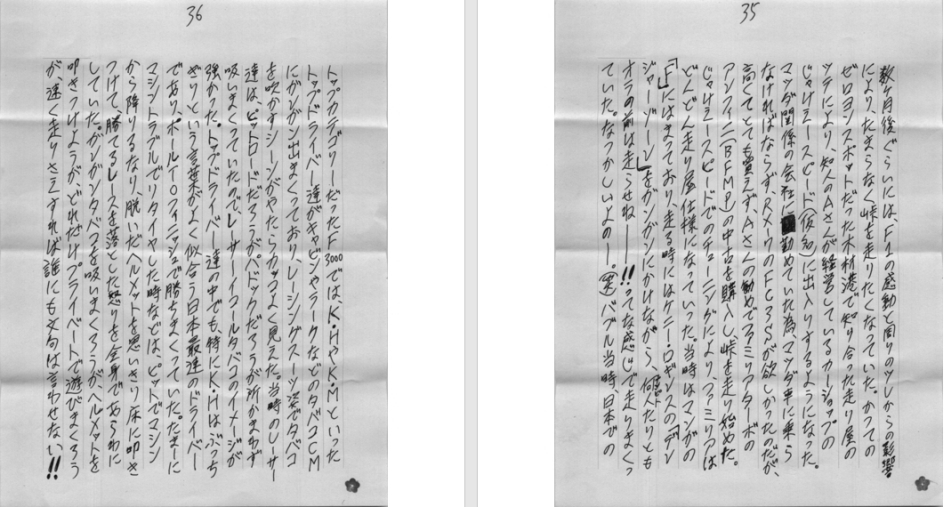 35
数ヶ月後ぐらいには、F1の感動と周りのツレからの影響
により、たまらなく峠を走りたくなっていた。かつての
ゼロヨンスポットだった木材港で知り合った走り屋の
ツテにより、知人のAさんが経営しているカーショップの
じゃけえースピード(仮名)に出入りするようになった。
マツダ関係の会社に勤めていた為、マツダ車に乗ら
なければならず、RX-7のFC3Sが欲しかったのだが、
高くてとても買えず、Aさんの勧めでファミリアターボの
アンフィニ(BFMP)の中古を購入し、峠を走り始めた。
じゃけえースピードでのチューニングにより、ファミリアは
どんどん走り屋仕様になっていった。当時はマンガの
「F」にはまっており、走る時にはケニー・ロギンスの「デン
ジャー・ゾーン」をガンガンにかけながら、何人たりとも
オラの前は走らせねーーー!!ってな感じで走りまくっ
ていた。なつかしいよのー。(笑)バブル当時、日本での
36
トップカテゴリーだったF3000では、K・HやK・Mといった
トップドライバー達がキャビンやラークなどのタバコCM
にガンガン出まくっており、レーシングスーツ姿でタバコ
を吹かすシーンがやたらカッコよく見えた。当時のレーサー
達は、ピットロードだろうがパドックだろうが所かまわず
吸いまくっていたので、レーサーイコールタバコのイメージが
強かった。トップドライバー達の中でも、特にK・Hはぶっち
ぎりという言葉がよく似合う日本最速のドライバー
であり、ポールTOフィニッシュで勝ちまくっていた。たまに
マシントラブルでリタイヤした時などは、ピットでマシン
から降りるなり、脱いだヘルメットを思いきり床に叩き
つけて、勝てるレースを落とした怒りを全身であらわに
していた。ガンガンタバコを吸いまくろうが、ヘルメットを
叩きつけようが、どれだけプライベートで遊びまくろう
が、速く走りさえすれば誰にも文句は言わせない!!